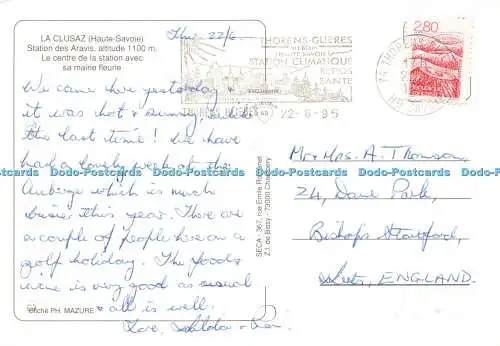 LA CLUSAZ (Haute-Savoie)
Station des Aravis, altitude 1100 m.
Le centre de la station avec
sa mairie fleurie
Thu. 22/6.
We came here yesterday &
it was hot & sunny, unlike
the last time! We have
had a lovely week at the
Auberge which is much
busier this year. There are
a couple of people here on a
golf holiday. The food &
wine is very good as usual
& all is well.
Love, Hilda &
Cliché PH. MAZURE
SECA - 367, rue Emile
Z.I. de Bissy - 73000 Chambéry
THORENS-GLIERES
HAUTE SAVOIE
STATION CLIMATIQUE
REPOS
SANTE
22-6-95
74 THORENS
2,80
Mr & Mrs. A. Thomson,
24, Dane Park,
Bishops Stortford,
Herts, ENGLAND.
Dodo-Postcards Dodo-Postcards Dodo-Postcards Dodo-Postcards Dodo-Postcards